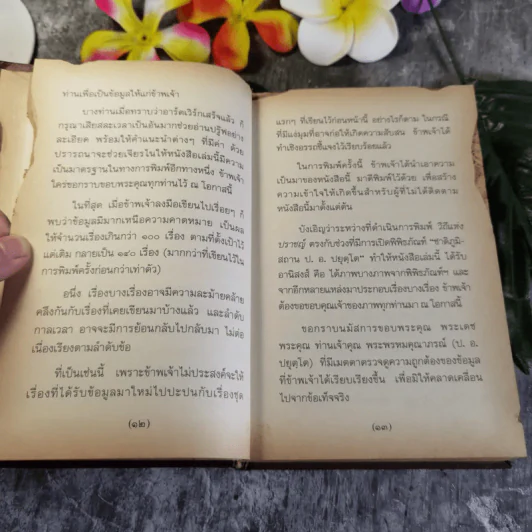 ท่านเพื่อเป็นข้อมูลให้แก่ข้าพเจ้า
บางท่านเมื่อทราบว่าอาร์ตเวิร์กเสร็จแล้ว ก็
กรุณาเสียสละเวลาเป็นอันมากช่วยอ่านปรู๊ฟอย่าง
ละเอียด พร้อมให้คำแนะนำต่างๆ ที่มีค่า ด้วย
ปรารถนาจะช่วยเจียระไนให้หนังสือเล่มนี้มีความ
เป็นมาตรฐานในทางการพิมพ์อีกทางหนึ่ง ข้าพเจ้า
ใคร่ขอกราบขอบพระคุณทุกท่านไว้ ณ โอกาสนี้
ในที่สุด เมื่อข้าพเจ้าลงมือเขียนไปเรื่อยๆ ก็
พบว่าข้อมูลมีมากเหนือความคาดหมาย เป็นผล
ให้จำนวนเรื่องเกินกว่า ๑๐๐ เรื่อง ตามที่ตั้งเป้าไว้
แต่เดิม กลายเป็น ๑๔๐ เรื่อง (มากกว่าที่เขียนไว้ใน
การพิมพ์ครั้งก่อนกว่าเท่าตัว)
อนึ่ง เรื่องบางเรื่องอาจมีความละม้ายคล้าย
คลึงกันกับเรื่องที่เคยเขียนมาบ้างแล้ว และลำดับ
กาลเวลา อาจจะมีการย้อนกลับไปกลับมา ไม่ต่อ
เนื่องเรียงตามลำดับข้อ
ที่เป็นเช่นนี้ เพราะข้าพเจ้าไม่ประสงค์จะให้
เรื่องที่ได้รับข้อมูลมาใหม่ไปปะปนกับเรื่องชุด
(๑๒)
แรกๆ ที่เขียนไว้ก่อนหน้านี้ อย่างไรก็ตาม ในกรณี
ที่มีแง่มุมที่อาจก่อให้เกิดความสับสน ข้าพเจ้าได้
ทำเชิงอรรถชี้แจงไว้เรียบร้อยแล้ว
ในการพิมพ์ครั้งนี้ ข้าพเจ้าได้นำเอาความ
เป็นมาของหนังสือนี้ มาตีพิมพ์ไว้ด้วย เพื่อสร้าง
ความเข้าใจให้เกิดขึ้นสำหรับผู้ที่ไม่ได้ติดตาม
หนังสือนี้มาตั้งแต่ต้น
บังเอิญว่าระหว่างที่ดำเนินการพิมพ์ วิถีแห่ง
ปราชญ์ ตรงกับช่วงที่มีการเปิดพิพิธภัณฑ์ "ชาติภูมิ-
สถาน ป. อ. ปยุตฺโต" ทำให้หนังสือเล่มนี้ ได้รับ
อานิสงส์ คือ ได้ภาพบางภาพจากพิพิธภัณฑ์ฯ และ
จากอีกหลายแหล่งมาประกอบเรื่องบางเรื่อง ข้าพเจ้า
ต้องขอขอบคุณเจ้าของภาพทุกท่านมา ณ โอกาสนี้
ขอกราบนมัสการขอบพระคุณ พระเดช
พระคุณ ท่านเจ้าคุณ พระพรหมคุณาภรณ์ (ป. อ.
ปยุตฺโต) ที่มีเมตตาตรวจดูความถูกต้องของข้อมูล
ที่ข้าพเจ้าได้เรียบเรียงขึ้น เพื่อมิให้คลาดเคลื่อน
ไปจากข้อเท็จจริง
(๑๓)